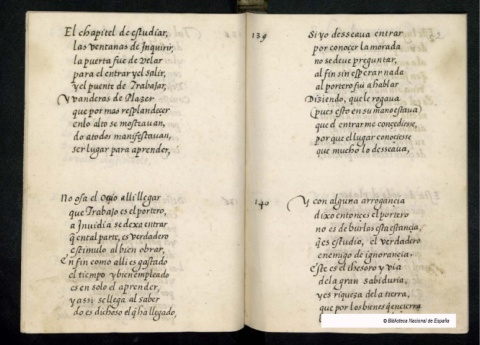 El chapitel de estudiar,
las ventanas de Inquirir,
la puerta fue de Velar
para el entrar yel salir,
yel puente de Trabajar,
Y vanderas de Plazer
que por mas resplandecer
enlo alto se mostrauan,
do atodos manifestauan,
ser lugar para aprender,
No osa el Ocio alli llegar
que Trabajo es el portero,
a Inuidia se dexa entrar
q̃ en tal parte, es verdadero
estimulo al bien obrar,
En fin como alli es gastado
el tiempo y bien empleado
es en solo el aprender,
y assi se llega al saber
do es dichoso el q̃ ha llegado,
139
Si yo desseaua entrar
por conocer la morada
no se deue preguntar,
al fin sin esperar nada
al portero fui a hablar
Diziendo, que le rogaua
(pues esto en su mano estaua)
que el entrar me concediesse,
por que el lugar conociesse
que mucho lo desseaua,
140
Y con alguna arrogancia
dixo entonces el portero
no es de burlas esta estancia,
q̃ es estudio, el verdadero
enemigo de ignorancia.
Este es el thesoro y via
de la gran sabiduria,
yes riqueza de la tierra,
que por los bienes q̃ encierra
© Biblioteca Nacional de España